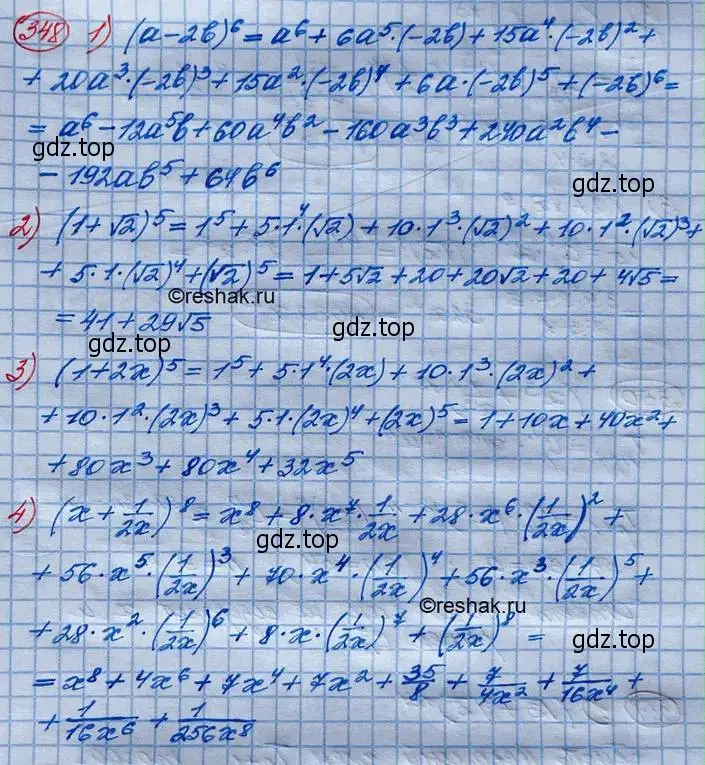 348 1) (a-2b)⁶ = a⁶ + 6a⁵·(-2b) + 15a⁴·(-2b)² +
+ 20a³·(-2b)³ + 15a²·(-2b)⁴ + 6a·(-2b)⁵ + (-2b)⁶ =
= a⁶ - 12a⁵b + 60a⁴b² - 160a³b³ + 240a²b⁴ -
gdz.top
- 192ab⁵ + 64b⁶
gdz.top
2) (1+√2)⁵ = 1⁵ + 5·1⁴·(√2) + 10·1³·(√2)² + 10·1²·(√2)³ +
+ 5·1·(√2)⁴ + (√2)⁵ = 1 + 5√2 + 20 + 20√2 + 20 + 4√5 =
©reshak.ru
= 41 + 29√5
gdz.top
3) (1+2x)⁵ = 1⁵ + 5·1⁴·(2x) + 10·1³·(2x)² +
+ 10·1²·(2x)³ + 5·1·(2x)⁴ + (2x)⁵ = 1 + 10x + 40x² +
+ 80x³ + 80x⁴ + 32x⁵
4) (x + 1/2x)⁸ = x⁸ + 8·x⁷·1/2x + 28·x⁶·(1/2x)² +
gdz.top
+ 56·x⁵·(1/2x)³ + 70·x⁴·(1/2x)⁴ + 56·x³·(1/2x)⁵ +
©reshak.ru
+ 28·x²·(1/2x)⁶ + 8·x·(1/2x)⁷ + (1/2x)⁸ =
gdz.top
= x⁸ + 4x⁶ + 7x⁴ + 7x² + 35/8 + 7/4x² + 7/16x⁴ +
+ 1/16x⁶ + 1/256x⁸